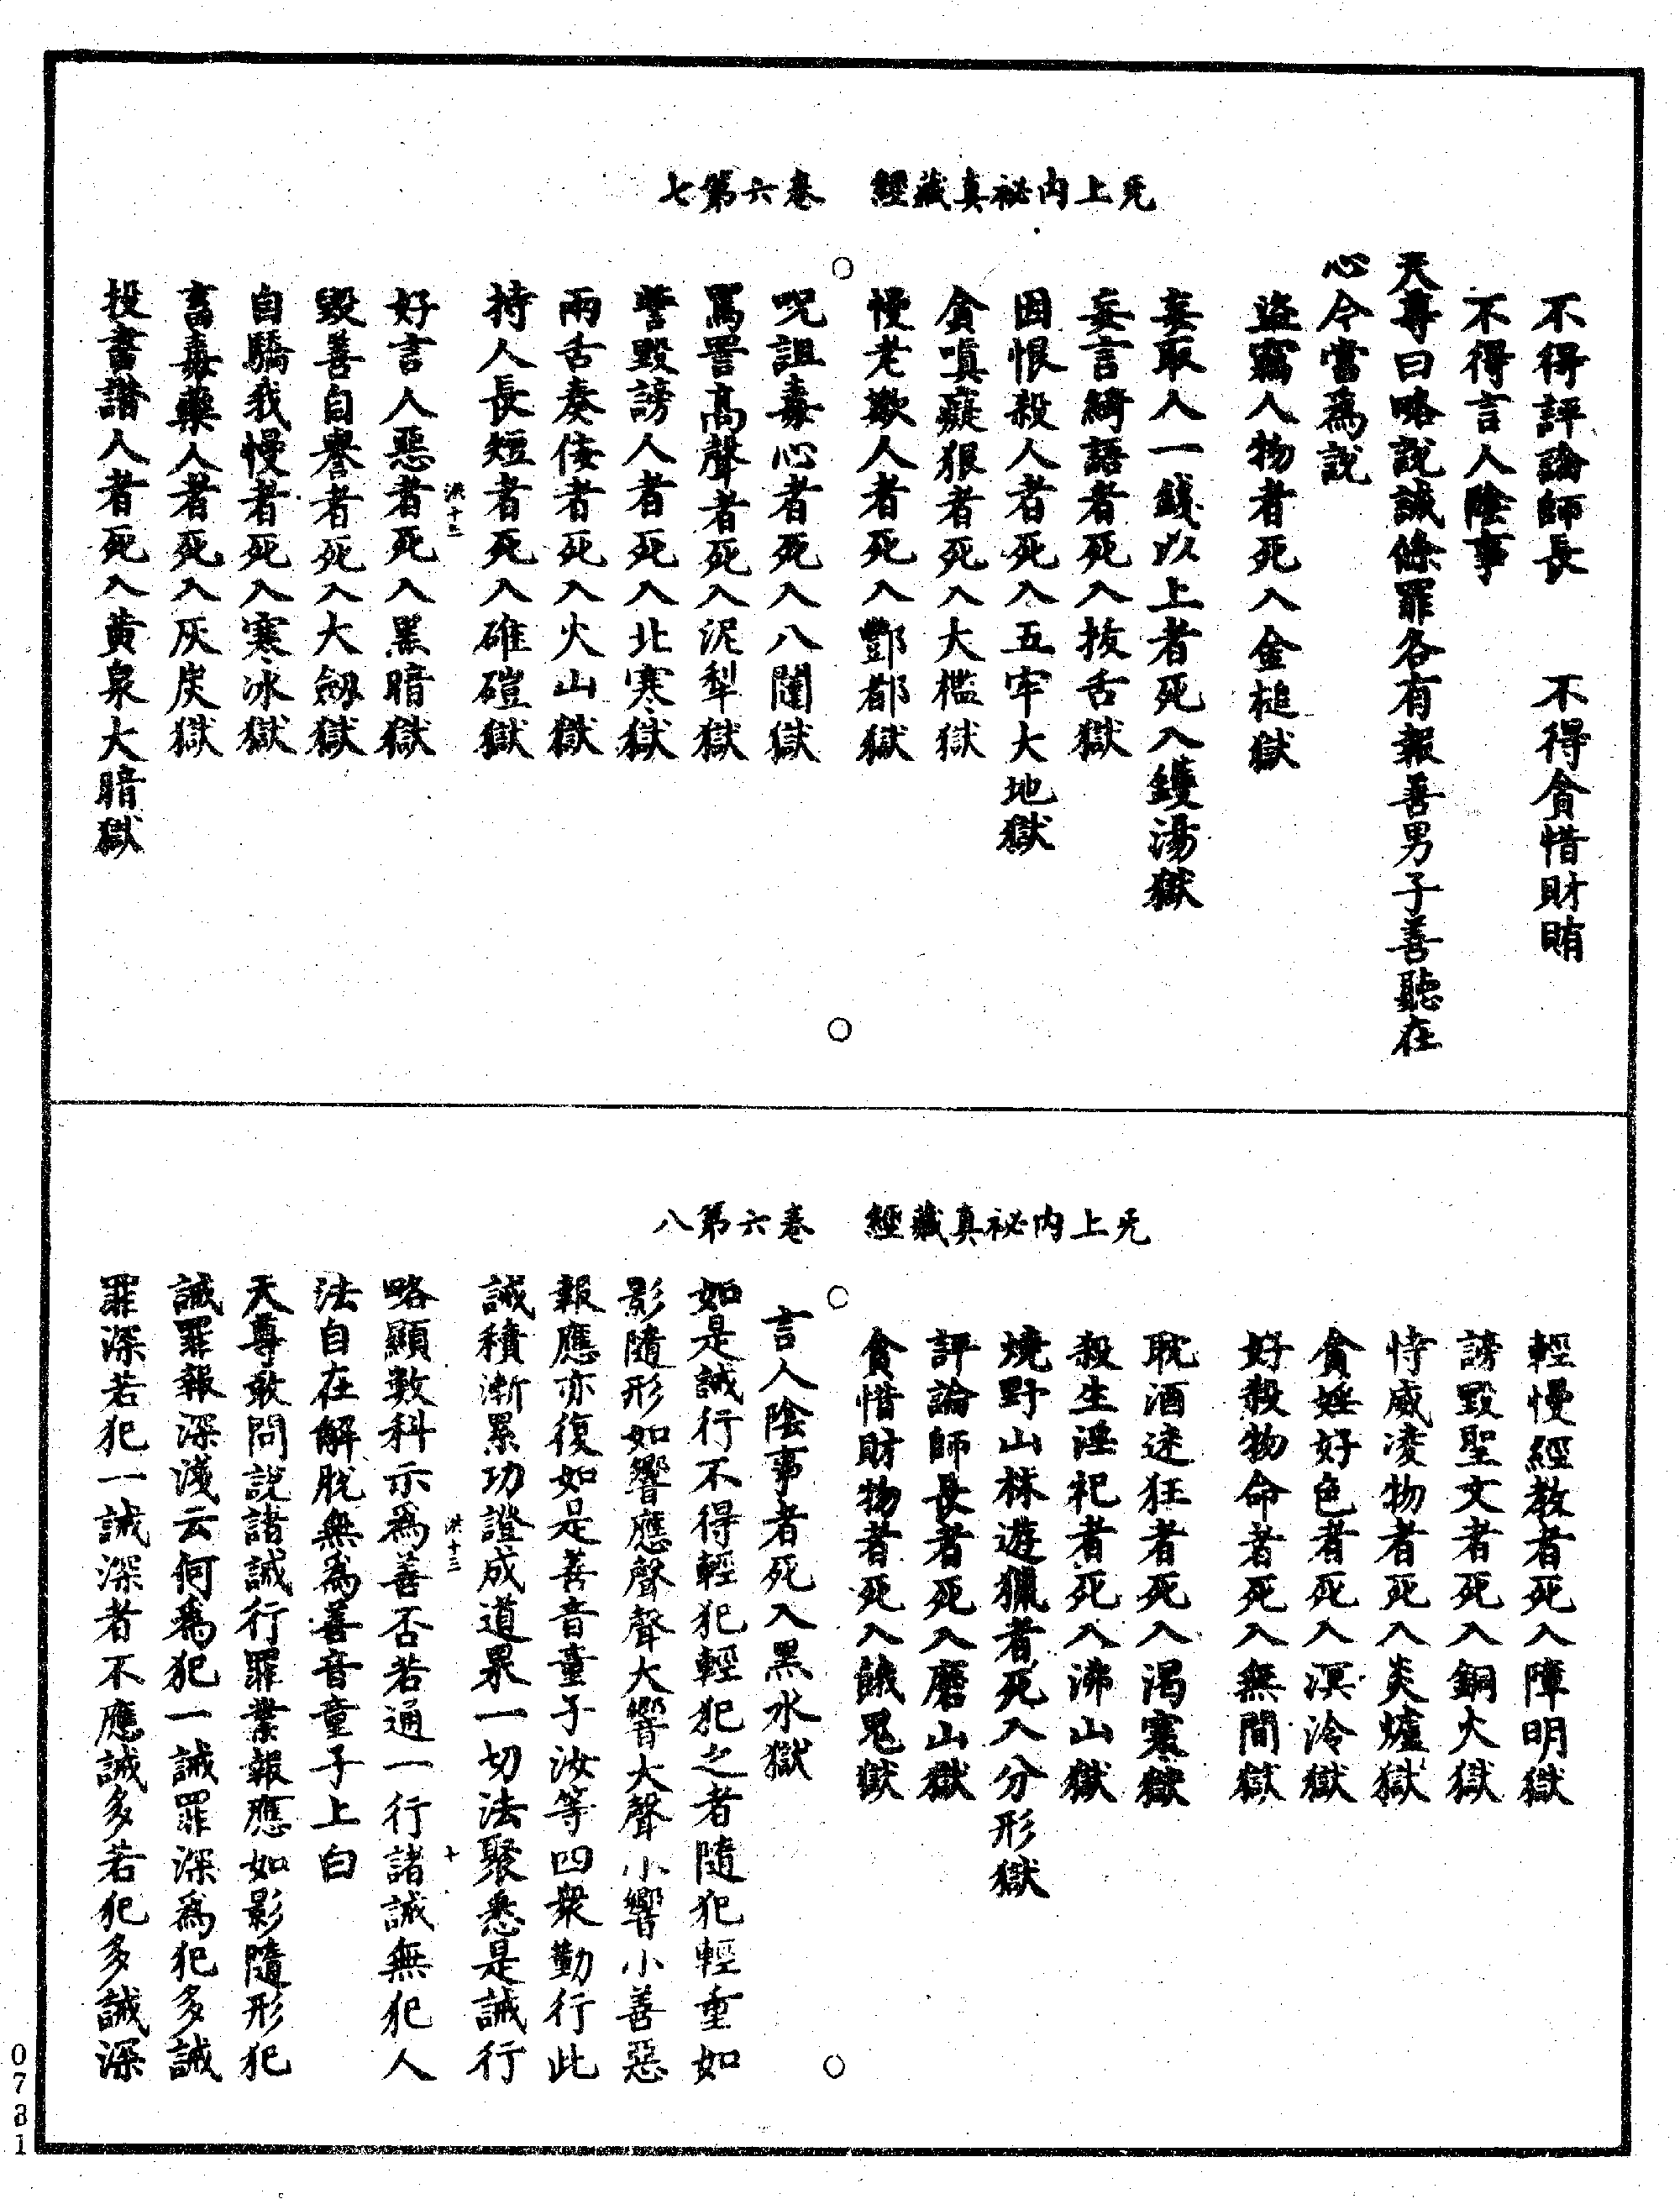 无上內祕真藏經　卷六第七
不得評論師長　不得貪惜財賄
不得言人陰事
天尊曰略說誡條罪各有報善男子善聽在
心今當為說
盜竊人物者死入金槌獄
妄取人一錢以上者死入鑊湯獄
妄言綺語者死入拔舌獄
因恨殺人者死入五牢大地獄
貪嗔癡狠者死入大檻獄
慢老欺人者死入酆都獄
呪詛毒心者死入八闇獄
罵詈高聲者死入泥犁獄
訾毀謗人者死入北寒獄
兩舌奏佞者死入火山獄
持人長短者死入碓磑獄
洪十二
好言人惡者死入黑暗獄
毀善自譽者死入大劒獄
自驕我慢者死入寒冰獄
畜毒藥人者死入灰炭獄
投書譖人者死入黃泉大暗獄
无上內祕真藏經　卷六第八
輕慢經教者死入障明獄
謗毀聖文者死入銅火獄
恃威凌物者死入炎爐獄
貪婬好色者死入溟泠獄
好殺物命者死入無間獄
耽酒迷狂者死入渴寒獄
殺生淫祀者死入沸山獄
燒野山林遊獵者死入分形獄
評論師長者死入磨山獄
貪惜財物者死入餓鬼獄
言人陰事者死入黑水獄
如是誡行不得輕犯輕犯之者隨犯輕重如
影隨形如響應聲聲大響大聲小響小善惡
報應亦復如是善音童子汝等四衆勤行此
誡積漸累功證成道果一切法聚悉是誡行
洪十三
十
略顯數科示為善否若通一行諸誡無犯人
法自在解脫無為善音童子上白
天尊敢問說諸誡行罪業報應如影隨形犯
誡罪報深淺云何為犯一誡罪深為犯多誡
罪深若犯一誡深者不應誡多若犯多誡深
0731